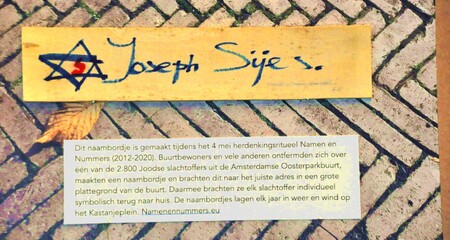 Joseph Sijes.
Dit naambordje is gemaakt tijdens het 4 mei herdenkingsritueel Namen en
Nummers (2012-2020). Buurtbewoners en vele anderen ontfermden zich over
een van de 2.800 Joodse slachtoffers uit de Amsterdamse Oosterparkbuurt,
maakten een naambordje en brachten dit naar het juiste adres in een grote
plattegrond van de buurt. Daarmee brachten ze elk slachtoffer individueel
symbolisch terug naar huis. De naambordjes lagen elk jaar in weer en wind op
het Kastanjeplein. Namenennummers.eu